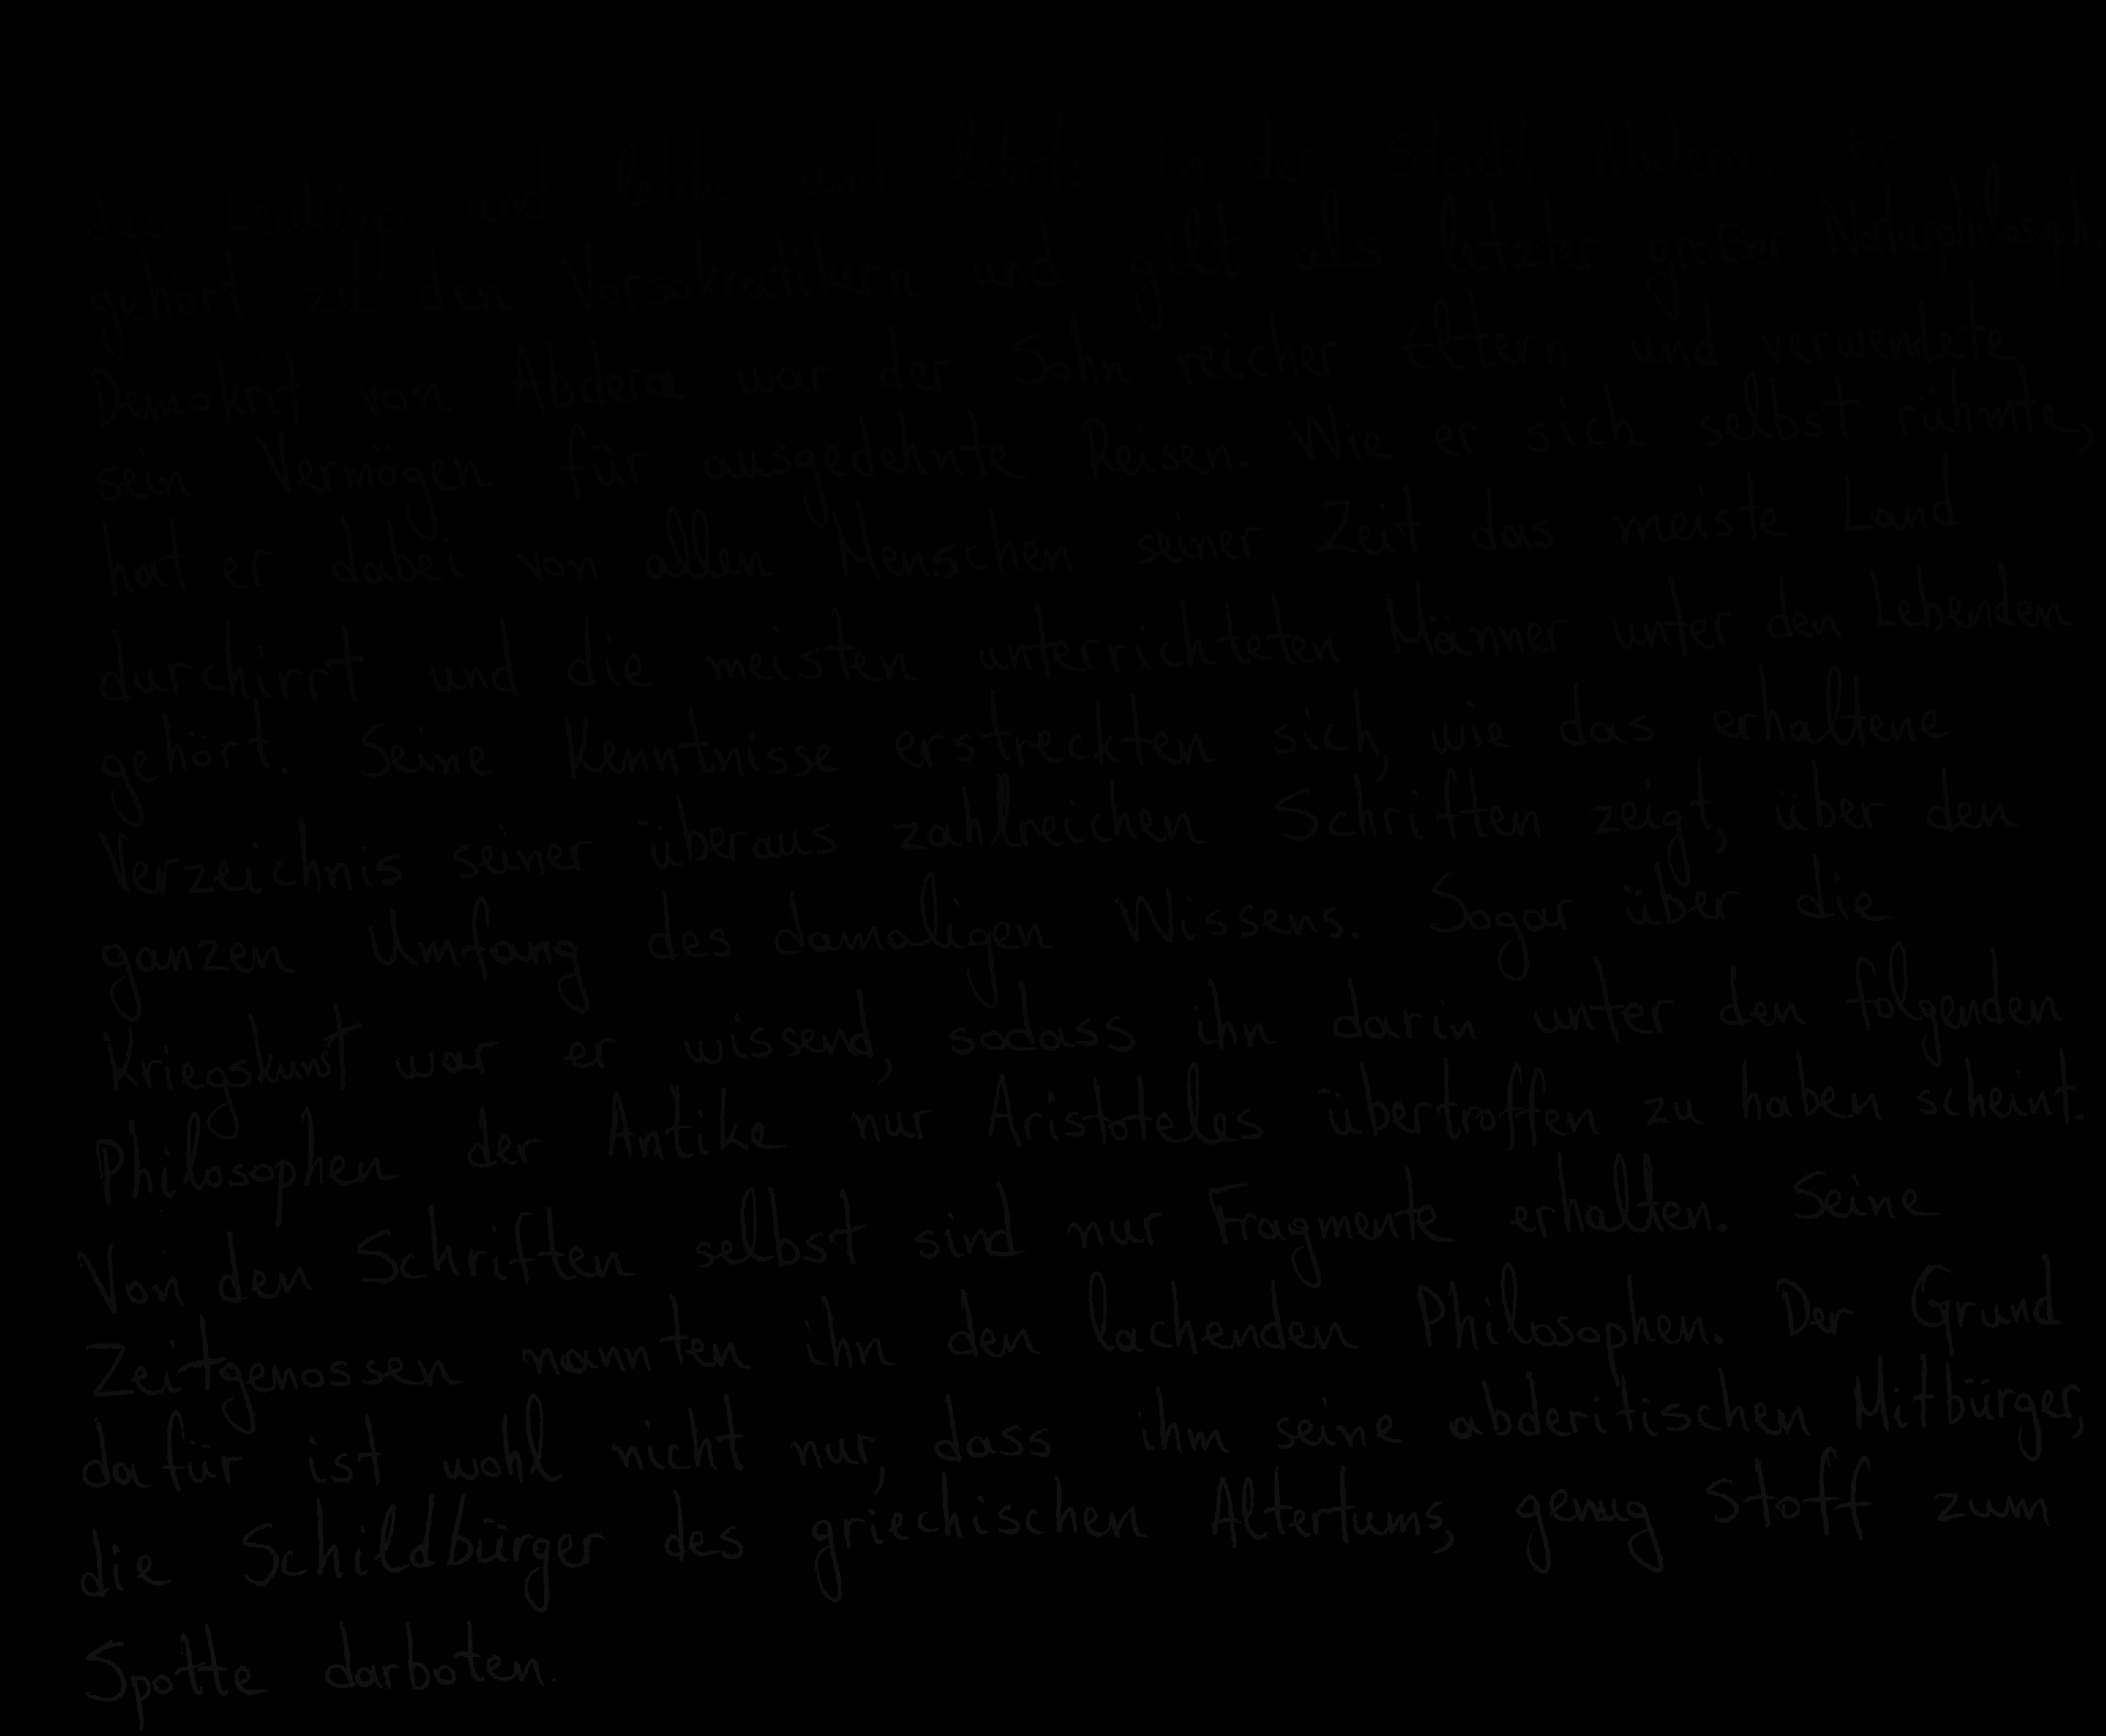 Der griechische Philosoph Demokrit
des Leukipp und lebte und lehrte in der Stadt Abdera. Er
gehört zu den Vorsokratikern und gilt als letzter großer Naturphilosoph.
Demokrit von Abdera war der Sohn reicher Eltern und verwendete
sein Vermögen für ausgedehnte Reisen. Wie er sich selbst rühmte,
hat er dabei von allen Menschen seiner Zeit das meiste Land
durchirrt und die meisten unterrichteten Männer unter den Lebenden
gehört. Seine Kenntnisse erstreckten sich, wie das erhaltene
Verzeichnis seiner überaus zahlreichen Schriften zeigt, über den
ganzen Umfang des damaligen Wissens. Sogar über die
Kriegskunst war er wissend, sodass ihn darin unter den folgenden
Philosophen der Antike nur Aristoteles übertroffen zu haben scheint.
Von den Schriften selbst sind nur Fragmente erhalten. Seine
Zeitgenossen nannten ihn den lachenden Philosophen. Der Grund
dafür ist wohl nicht nur, dass ihm seine abderitischen Mitbürger,
die Schildbürger des griechischen Altertums, genug Stoff zum
Spotte darboten.